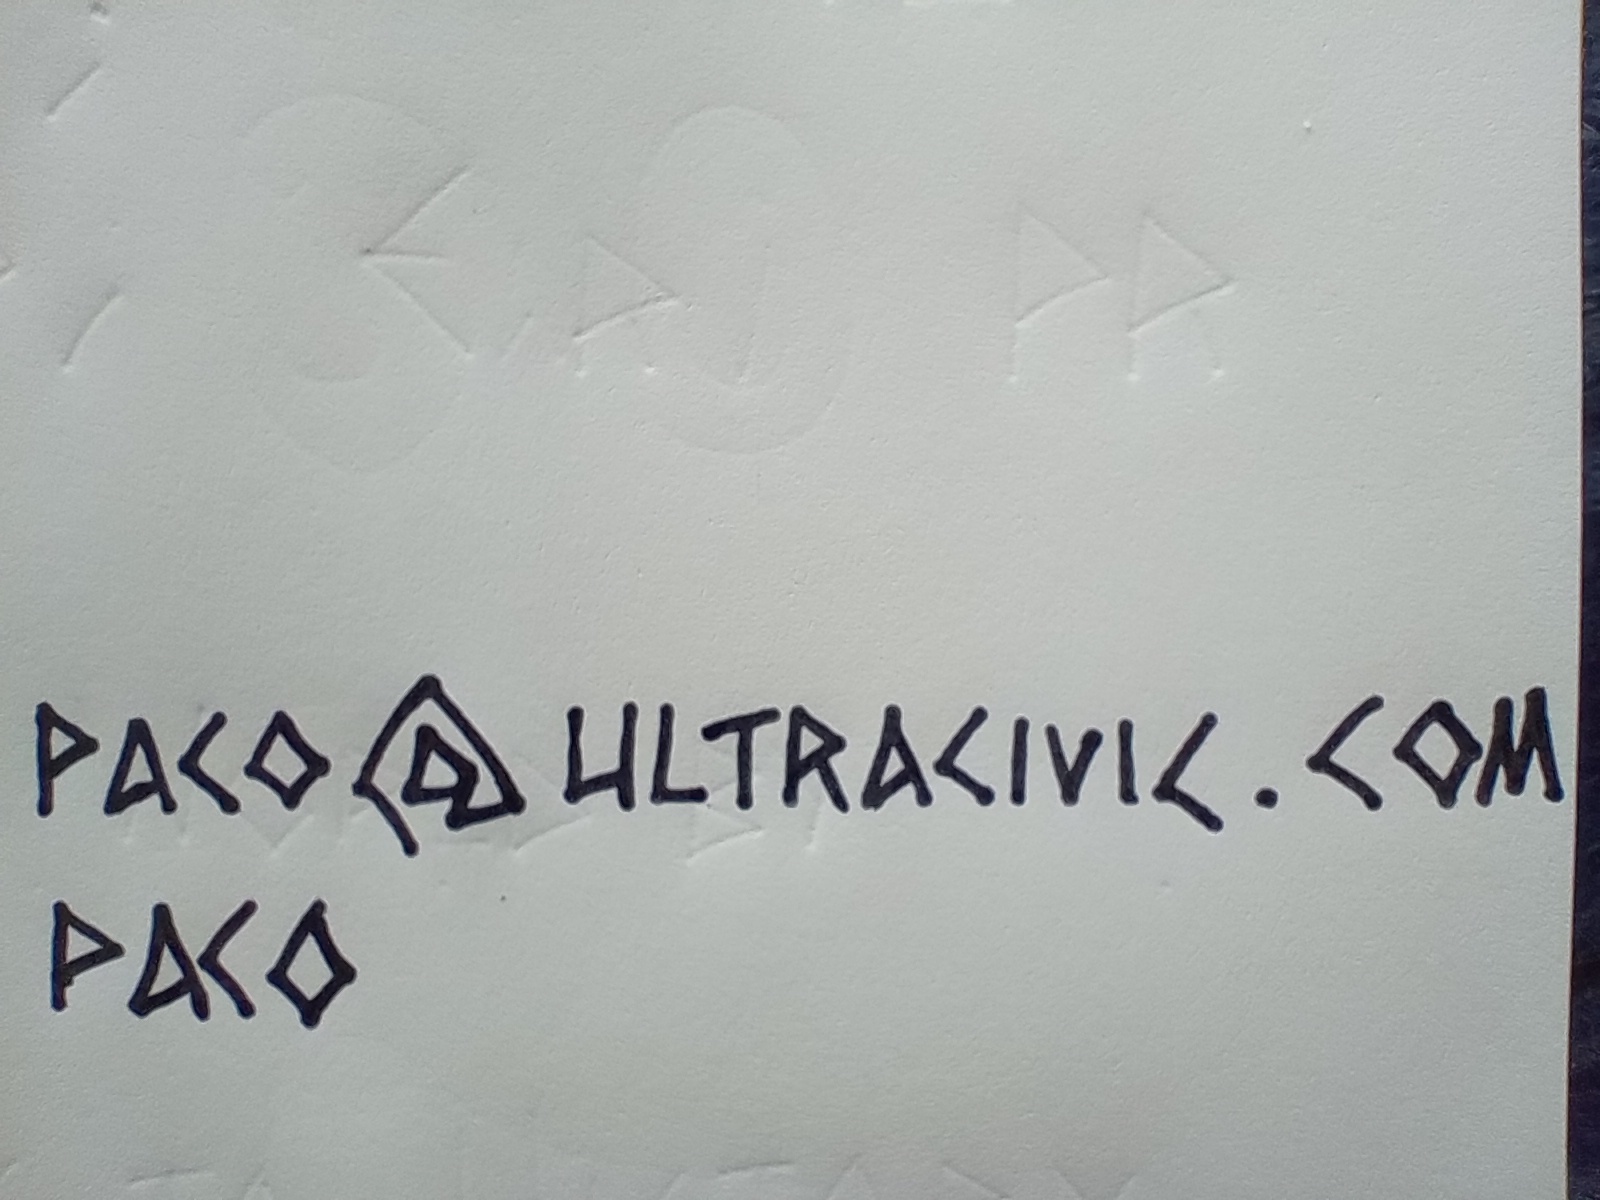 PACO@ULTRACIVIC.COM
PACO